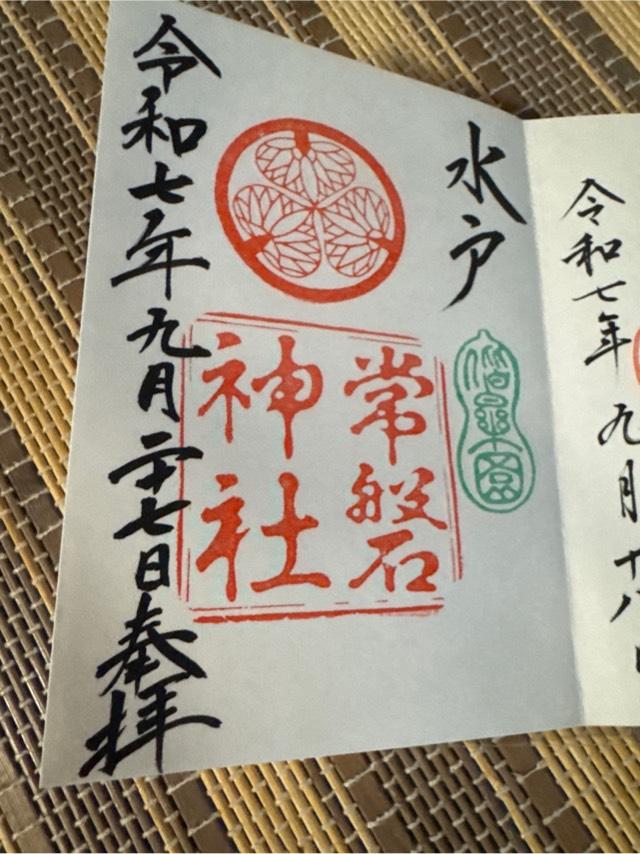 令和七年九月十八
水戸
偕樂園
常磐
神社
令和七年九月二十七日奉拝